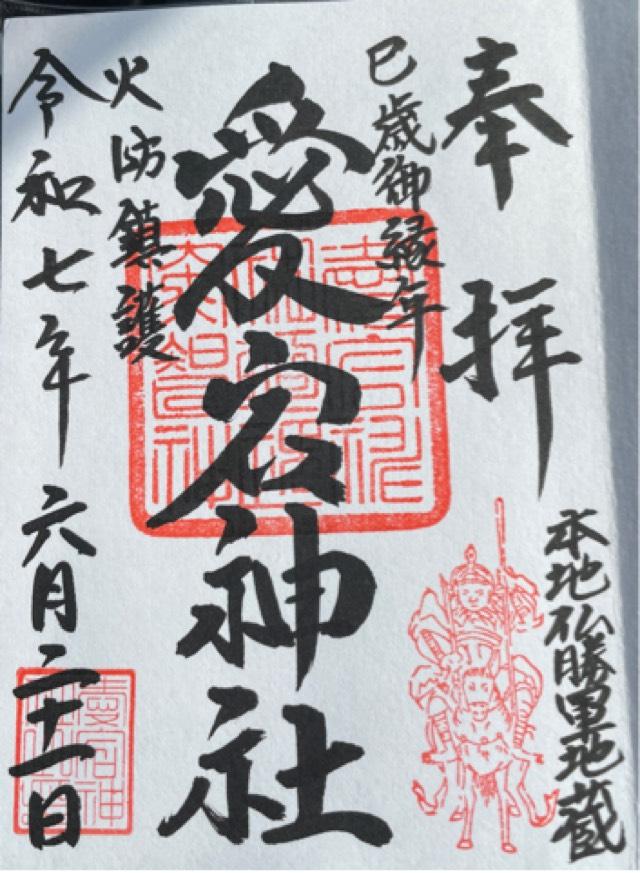 奉拝
本地仏勝軍地蔵
巳歳御縁年
愛宕神社
火防鎮護
令和七年六月二十一日